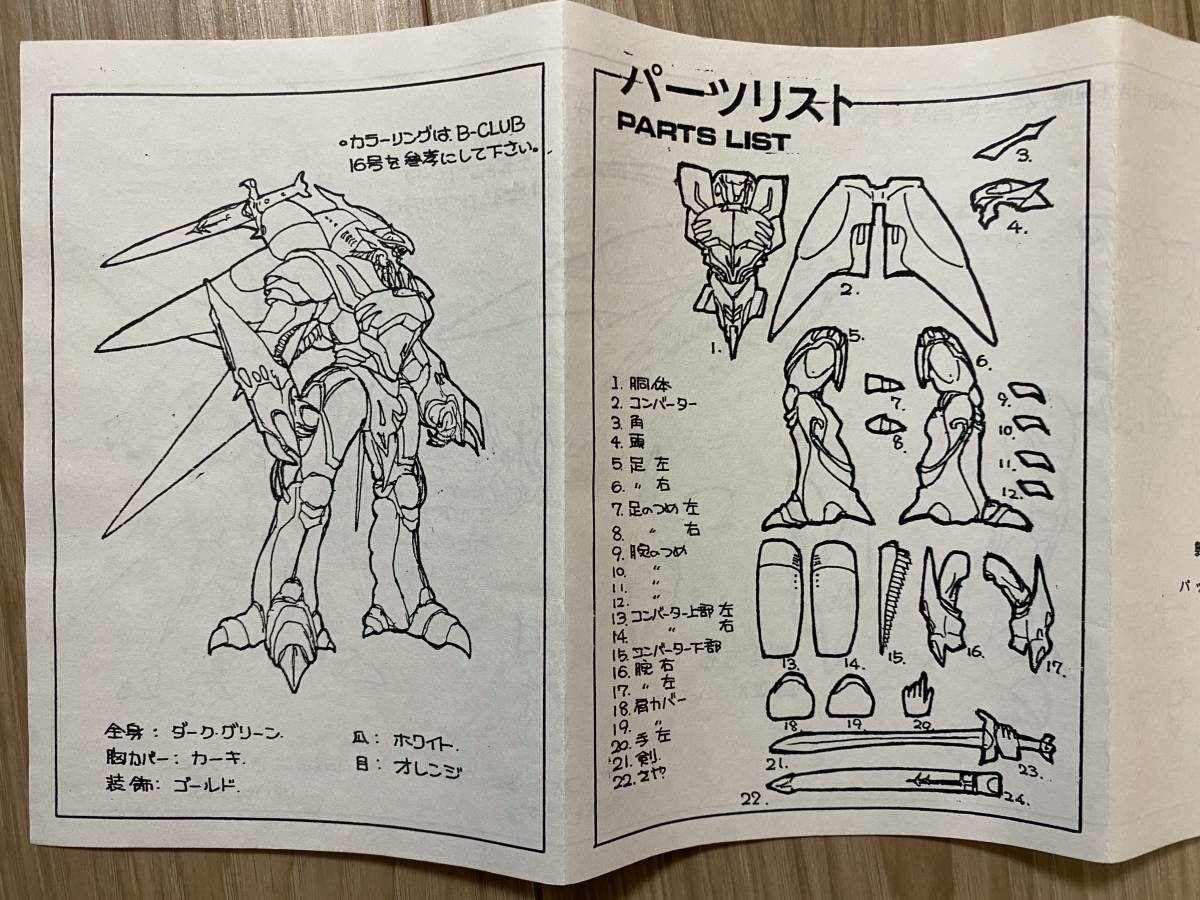 ○カラーリングは、B-CLUB
16号を参考にして下さい。
全身：ダーク・グリーン.
胸カバー：カーキ.
装飾：ゴールド.
爪：ホワイト.
目：オレンジ
パーツリスト
PARTS LIST
1.
2.
3.
4.
5.
6.
7.
8.
9.
10.
11.
12.
13.
14.
15.
16.
17.
18.
19.
20.
21.
22.
23.
24.
1. 胴体
2. コンバーター
3. 角
4. 頭
5. 足 左
6. 〃 右
7. 足のつめ 左
8. 〃 右
9. 腕のつめ
10. 〃
11. 〃
12. 〃
13. コンバーター上部 左
14. 〃 右
15. コンバーター下部
16. 腕 右
17. 〃 左
18. 肩カバー
19. 〃
20. 手 左
21. 剣
22. さや